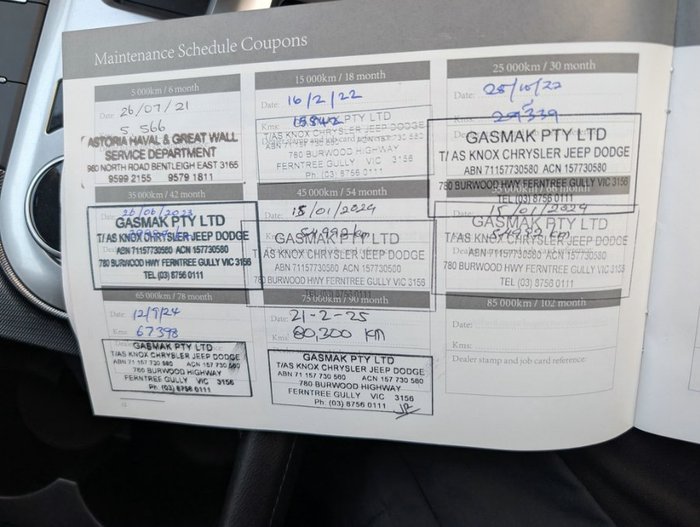 Maintenance Schedule Coupons
5 000km / 6 month
Date: 26/07/21
5,566
ASTORIA HAVAL & GREAT WALL
SERVICE DEPARTMENT
960 NORTH ROAD BENTLEIGH EAST 3165
9599 2155 9579 1811
15 000km / 18 month
Date: 16/2/22
Kms:
GASMAK PTY LTD
T/AS KNOX CHRYSLER JEEP DODGE
780 BURWOOD HWY
FERNTREE GULLY VIC 3156
Ph. (03) 8756 0111
25 000km / 30 month
Date: 25/10/22
Kms: 29339
GASMAK PTY LTD
T/ AS KNOX CHRYSLER JEEP DODGE
ABN 71157730580 ACN 157730580
780 BURWOOD HWY FERNTREE GULLY VIC 3156
TEL (03) 8756 0111
35 000km / 42 month
GASMAK PTY LTD
T/ AS KNOX CHRYSLER JEEP DODGE
ABN 71157730580 ACN 157730580
780 BURWOOD HWY FERNTREE GULLY VIC 3156
TEL (03) 8756 0111
45 000km / 54 month
Date: 15/01/2024
GASMAK PTY LTD
T/ AS KNOX CHRYSLER JEEP DODGE
ABN 71157730580 ACN 157730580
780 BURWOOD HWY FERNTREE GULLY VIC 3156
TEL (03) 8756 0111
month
15/01/2024
GASMAK PTY LTD
T/ AS KNOX CHRYSLER JEEP DODGE
ABN 71157730580 ACN 157730580
780 BURWOOD HWY FERNTREE GULLY VIC 3156
TEL (03) 8756 0111
65 000km / 78 month
Date: 12/9/24
Kms: 67398
GASMAK PTY LTD
T/AS KNOX CHRYSLER JEEP DODGE
ABN 71 157 730 580 ACN 157 730 580
780 BURWOOD HIGHWAY
FERNTREE GULLY VIC 3156
Ph. (03) 8756 0111
75 000km / 90 month
Date: 21-2-25
Kms: 80,300 KM
GASMAK PTY LTD
T/AS KNOX CHRYSLER JEEP DODGE
ABN 71 157 730 580 ACN 157 730 580
780 BURWOOD HIGHWAY
FERNTREE GULLY VIC 3156
Ph. (03) 8756 0111
85 000km / 102 month
Date:
Kms:
Dealer stamp and job card reference: